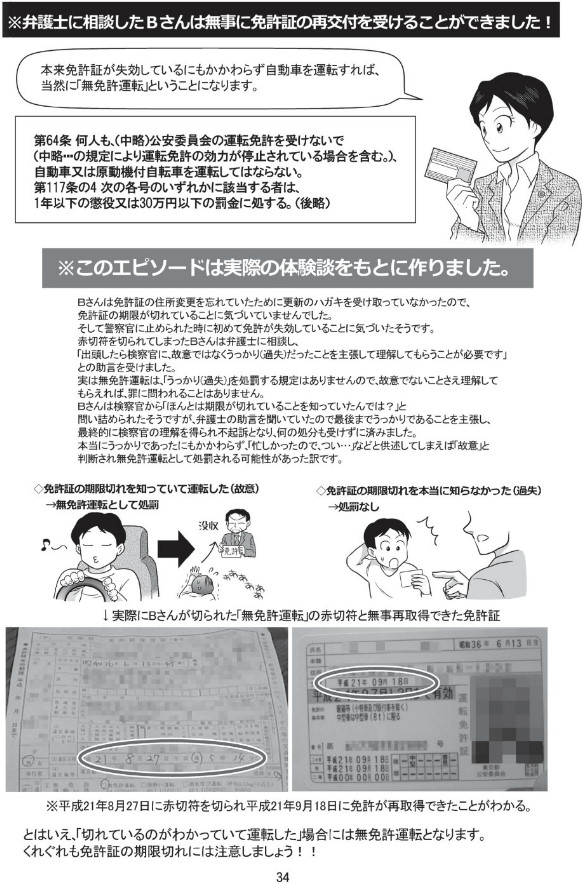 ※弁護士に相談したBさんは無事に免許証の再交付を受けることができました！
本来免許証が失効しているにもかかわらず自動車を運転すれば、
当然に「無免許運転」ということになります。
第64条 何人も、（中略）公安委員会の運転免許を受けないで
（中略…の規定により運転免許の効力が停止されている場合を含む。）、
自動車又は原動機付自転車を運転してはならない。
第117条の4 次の各号のいずれかに該当する者は、
1年以下の懲役又は30万円以下の罰金に処する。（後略）
※このエピソードは実際の体験談をもとに作りました。
Bさんは免許証の住所変更を忘れていたために更新のハガキを受け取っていなかったので、
免許証の期限が切れていることに気づいていませんでした。
そして警察官に止められた時に初めて免許が失効していることに気づいたそうです。
赤切符を切られてしまったBさんは弁護士に相談し、
「出頭したら検察官に、故意ではなくうっかり（過失）だったことを主張して理解してもらうことが必要です」
との助言を受けました。
実は無免許運転は、「うっかり（過失）」を処罰する規定はありませんので、故意でないことさえ理解して
もらえれば、罪に問われることはありません。
Bさんは検察官から「ほんとは期限が切れていることを知っていたんでは？」と
問い詰められたそうですが、弁護士の助言を聞いていたので最後までうっかりであることを主張し、
最終的に検察官の理解を得られ不起訴となり、何の処分も受けずに済みました。
本当にうっかりであったにもかかわらず、「忙しかったので、つい…」などと供述してしまえば「故意」と
判断され無免許運転として処罰される可能性があった訳です。
◇免許証の期限切れを知っていて運転した（故意）
→無免許運転として処罰
◇免許証の期限切れを本当に知らなかった（過失）
→処罰なし
没収
免許
↓実際にBさんが切られた「無免許運転」の赤切符と無事再取得できた免許証
21 8 27
昭和36年 6月13日生
平成21年09月18日
有効
眼鏡等
中型車は中型車(8t)に限る
運転免許証
平成21年09月18日
平成21年09月18日
平成00年00月00日
東京都
公安委員会
※平成21年8月27日に赤切符を切られ平成21年9月18日に免許が再取得できたことがわかる。
とはいえ、「切れているのがわかっていて運転した」場合には無免許運転となります。
くれぐれも免許証の期限切れには注意しましょう！！
34